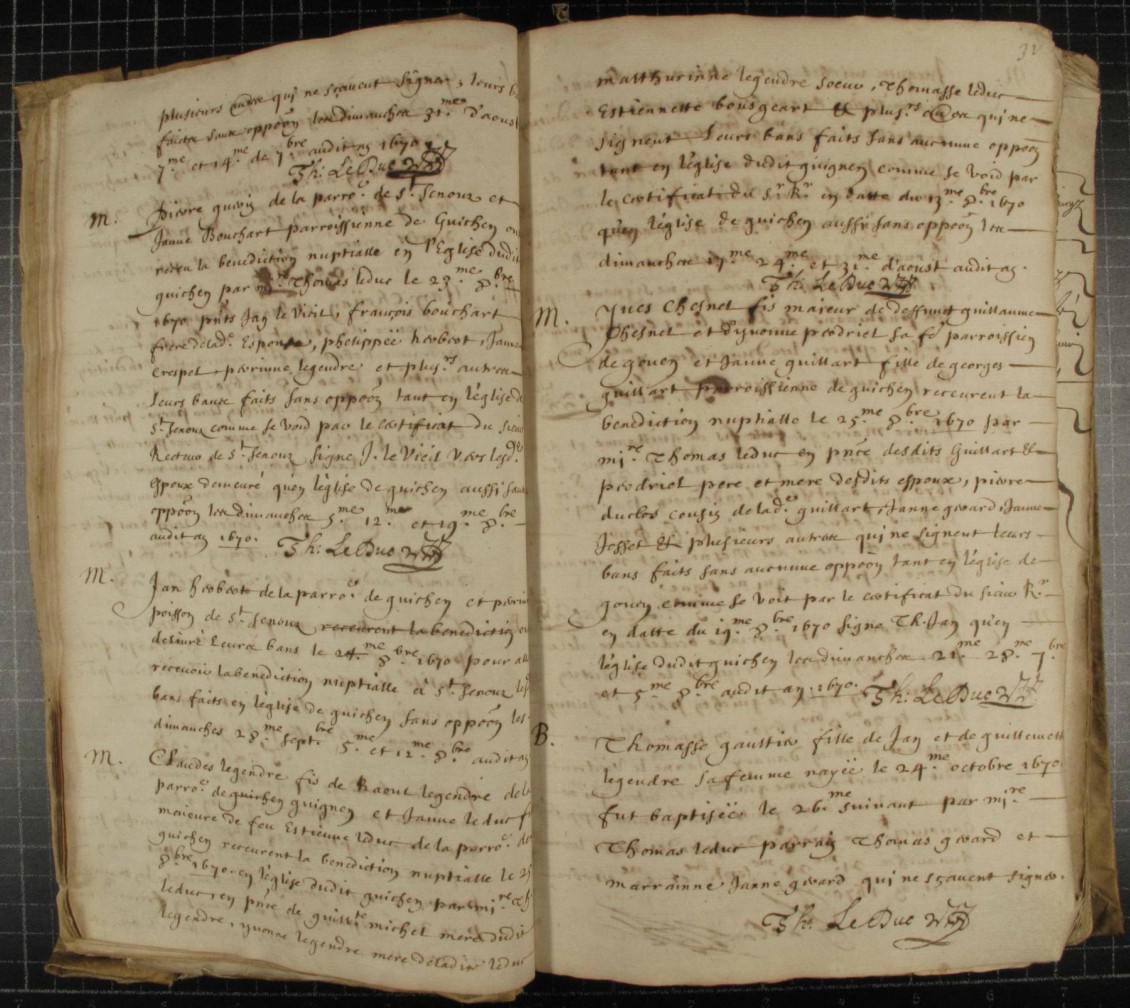 plusieurs autres qui ne sçavent signer, leurs b
faitz sans oppoõn les dimanches 31.me d'aoust
7me et 14.me de 7bre audit an 1670
Th: Le Duc
M. Pierre de la parro.e de St. Senoux et
Janne Bouchart parroissienne de Guichen on
receu la benediction nuptialle en l'Eglise dudit
guichen par Thomas leduc le 23.me 8.bre
1670 pñts Jan le Vieil, françois bouchart
frere de lad. Espouse, phelippe herbert, Janne
Crespel perrinne legendre et plus.rs autres
leurs bans faits sans oppoõn tant en l'église de
St. Senoux comme se void par le certificat du sieur
Recteur de St. Senoux signé J. le Vieil vers lesd.
Espoux demeuré qu'en l'église de guichen aussi sans
oppoõn les dimanches 5.me 12.me et 19.me 8.bre
audit an 1670. Th: Le Duc
M. Jan herbert de la parro.e de guichen et perrin
poisson de St. Senoux receurent la benediction
delivré leurs bans le 24.me 8.bre 1670 pour all
recevoir la benediction nuptialle à St. Senoux les
bans faits en leglise de guichen sans oppoõn les
dimanches 28.me sept.bre 5.me et 12.me 8.bre audit an
M. Claudes legendre fis de Raoul legendre de la
parro.e de guichen guignen et Janne leduc f
maieure de feu Estienne leduc de la parro.e de
guichen receurent la benediction nuptialle le 25
8.bre 1670. en l'église dudit guichen par mi.re Th
leduc, en pñce de michel mere dudit
legendre, yvonne legendre mere de ladite leduc
32
matthurinne legendre soeur, Thomasse leduc
Estiennette bougeart & plus.rs autres qui ne
signent leurs bans faits sans aucunne oppoõn
tant en l'église dudit guignen comme se void par
le certificat du S.r R.r en datte du 8.bre 1670
qu'en l'église de guichen aussy sans oppoõn les
dimanches 17.me 24.me et 31.me d'aoust audit an.
Th: Le Duc
M. Yves Chesnel fis maieur de deffunt guillaume
Chesnel et d'yvonne perdriel sa fe parroissien
de goven et Janne guillart fille de georges
guillart parroissienne de guichen receurent la
benediction nuptialle le 25.me 8.bre 1670 par
mi.re Thomas leduc en pñce desdits Guillart &
perdriel pere et mere desdits espoux, pierre
duclos cousin de lad.e guillart, Janne gerard, Janne
Josset & plusieurs autres qui ne signent leurs
bans faits sans aucunne oppoõn tant en l'église de
goven comme se voit par le certificat du sieur R.r
en datte du 19.me 8.bre 1670 signé Th: Jan qu'en
l'église dudit guichen les dimanches 21.me 28.me 7.bre
et 5.me 8.bre audit an 1670. Th: Le Duc
B. Thomasse gaultier fille de Jan et de guillemett
legendre sa femme nayëe le 24.me octobre 1670
fut baptisëe le 26.me suivant par mi.re
Thomas leduc parrain Thomas gerard et
marrainne Janne gerard qui ne sçavent signer.
Th: Le Duc